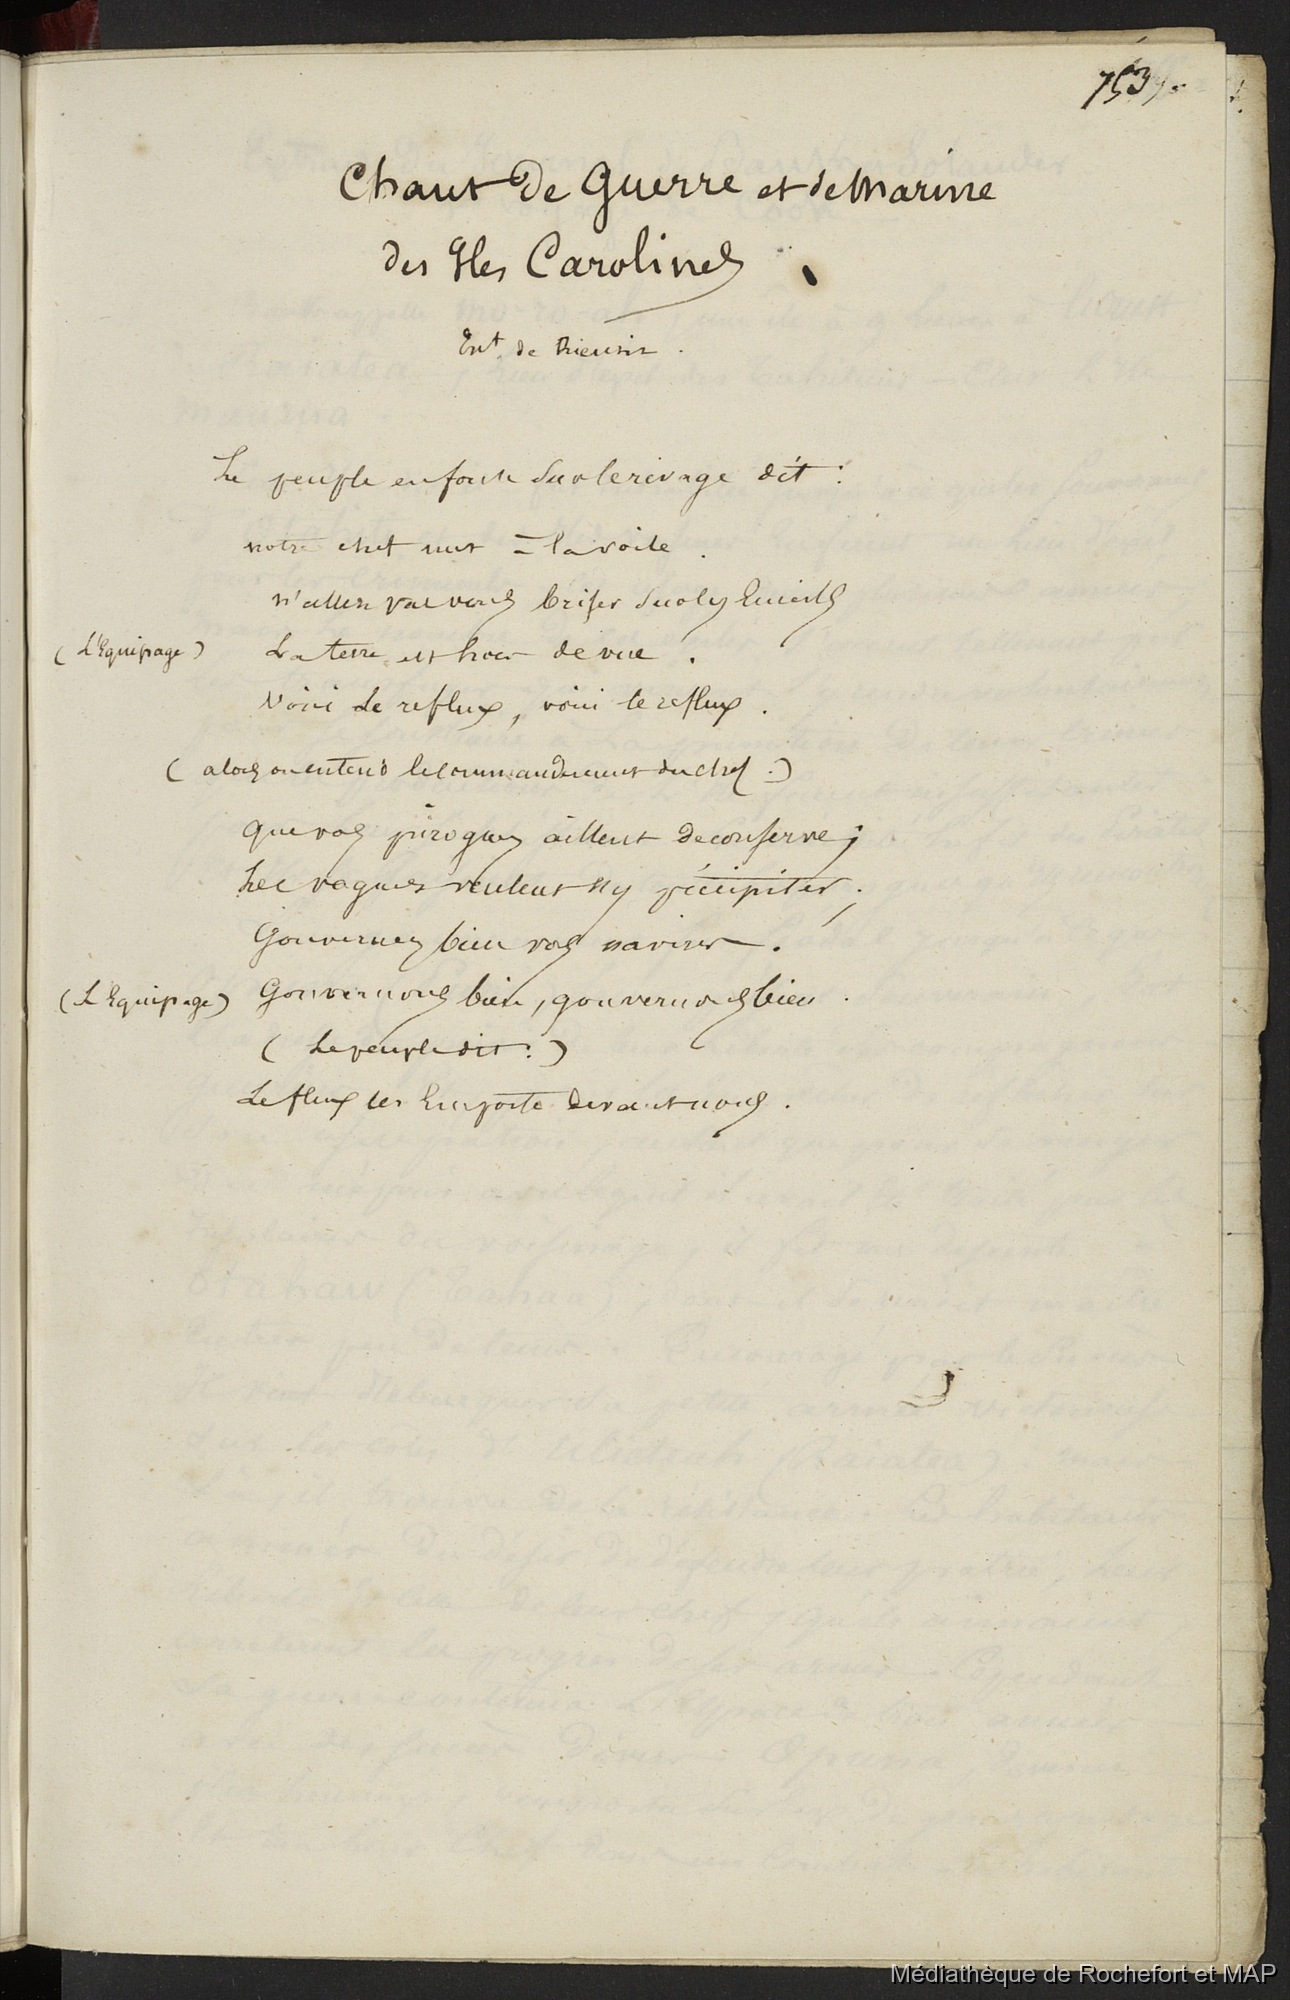 753.
Chant de Guerre et de Marine
des Iles Carolines
Ext. de
Le peuple en foule sur le rivage dit :
notre chef met à la voile .
n'allez pas vous briser sur les Ecueils
(L'Equipage) La terre est hors de vue .
Voici le reflux, voici le reflux .
( alors on entend le commandement du chef :)
que vos pirogues aillent de conserve ;
Les vagues veulent s'y précipiter ;
Gouvernez bien vos navires .
(L'Equipage) Gouvernons bien, gouvernons bien .
( Le peuple dit : )
Le flux les Emporte devant nous .
Médiathèque de Rochefort et MAP